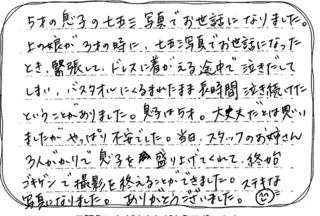 5才の息子の七五三写真でお世話になりました。
上の娘が3才の時に、七五三写真でお世話になった
とき、緊張して、ドレスに着がえる途中で泣きだして
しまい、バスタオルにくるまれたまま長時間泣き続けた
ということがありました。息子は5才。大丈夫だとは思い
ましたが やっぱり不安でした。当日、スタッフのお姉さん
3人がかりで息子を盛り上げてくれて、終始
ゴキゲンで撮影を終えることができました。ステキな
写真になりました。ありがとうございました。